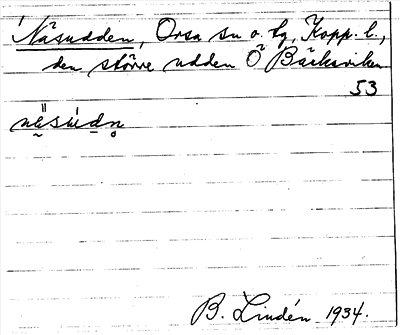 Näsudden, Orsa sn o. tg, Kopp. l.,
den större udden Ö Bäcksviken
53
B. Lindén 1934.